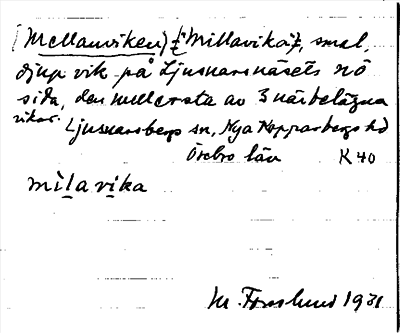 (Mellanviken) [Millavika], smal,
djup vik på Ljusnarsnäsets nö
sida, den mellersta av 3 närbelägna
vikar. Ljusnarsbergs sn, Nya Kopparbergs hd
Örebro län K 40
milavika
M. Forslund 1931